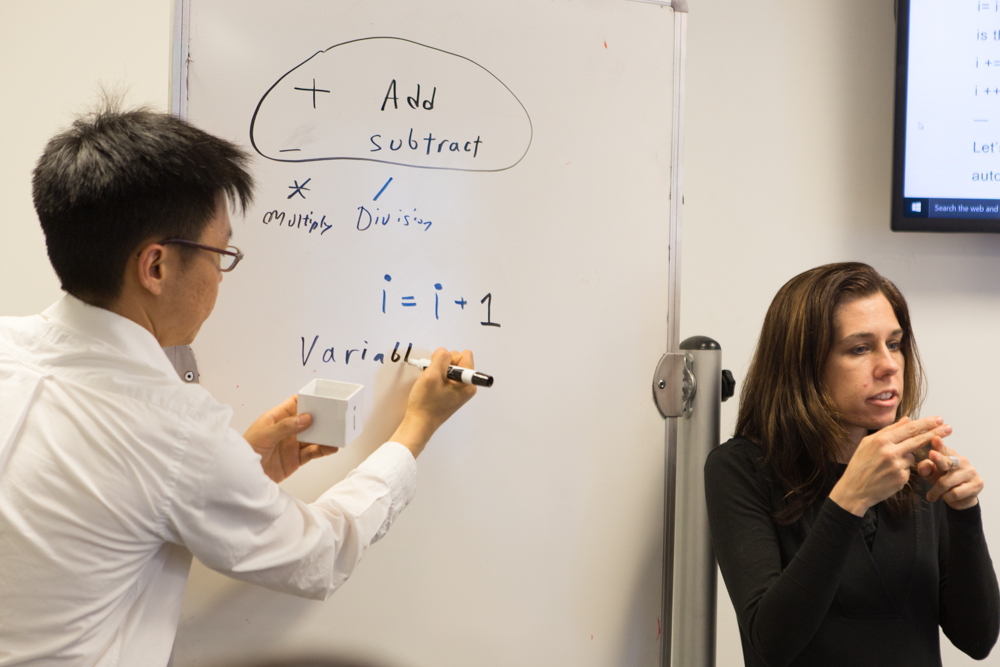 + Add
- subtract
* /
multiply Division
i = i + 1
Variabl
i= i
is t
i +=
i ++
—
Let's
auto
Search the web and